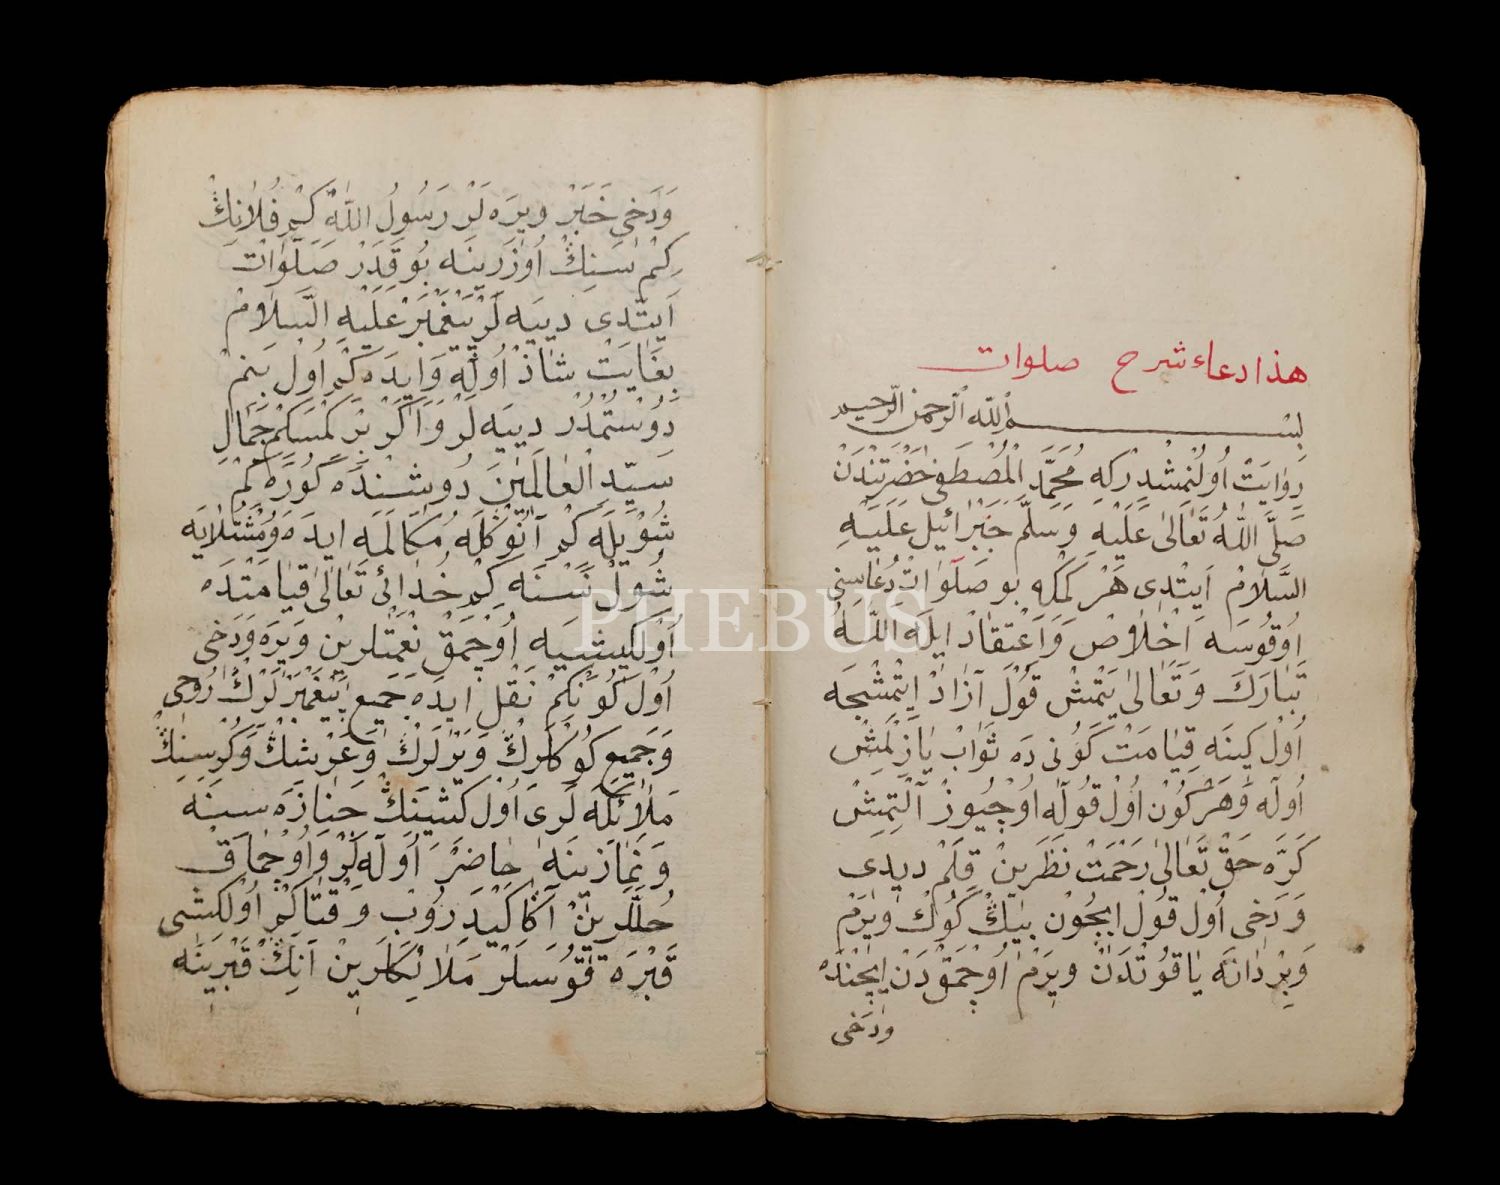 هذا دعاء شرح صلوات
بِسْــــمِ اللّه الرّحمن الرّحيم
رِوٰايَتْ اُولُنْمِشْدِرْكِهِ مُحَمَّدِ الْمُصْطَفٰى حَضْرَتِنْدَنْ
صَلَّى اللّٰهُ تَعَالىٰ عَلَيْهِ وَسَلَّمْ جَبْرٰائيل عَلَيْهِ
السَّلامْ اَيِتْدِى هَرْ كِمْكِه بو صَلَوٰاتْ دُعٰاسِنى
اُوقُوسَه اِخْلٰاصْ وَاَعْتِقٰادْ ايلَه اَللّٰهُ
تَبٰارَكَ وَتَعٰالىٰ يَتْمِشْ قُولْ آزٰادْ اِتْمِشْجَه
اُوْل كِيسَنَه قِيٰامَتْ كُونى دَه ثَوٰابْ يٰازِلْمِشْ
اُولَه وَهَرْكُونْ اُولْ قُولَه اُوْجيُوزْ آلْتِمِشْ
كَرَّه حَقْ تَعٰالىٰ رَحْمَتْ نَظَرِينْ قِلَمْ ديدى
وَدَخى اُول قُولْ ايچُونْ بيٖكْ كُوشْكْ ويرَمْ
وَبِرْدٰانَه يٰاقُوتْدَنْ ويرَمْ اُوچْمَقْ دَنْ ايچِنْدَه
ودَخى
وَدَخى خَبَرْ ويرَه لَرْ رَسُولُ اللّٰه كِيمْ فُلٰانِكْ
كِمْسَنِكْ اُوزَرينَه بُو قَدَرْ صَلَوٰاتْ
اَيِتْدى دييَه لَرْ پَيْغَمْبَرْ عَلَيْهِ السَّلَامْ
بغٰايَتْ شٰاذْ اُولَه وَايدَه كِمْ اُول بَنِمْ
دُوسْتُمْدُرْ دييَه لَرْ وَاَكَرْ بِرْ كِمْسَه كِمْ جَمٰالِ
سَيِّدِ الْعٰالَمينَ دُوشِنْدَه كُورَه كِمْ
شُويْلَه كِمْ آنُوكْلَه مُكٰالَمَه ايدَه وَمُشْتُلٰايَه
شُولْ نَسْنَه كِمْ خُدٰائى تَعٰالىٰ قِيٰامَتْدَه
اُولْكيشيَه اُوچْمَقْ نِعْمَتْلَرينْ ويرَه وَدَخى
اُولْ كُونْكِمْ نَقْلْ ايدَه جَميع پَيْغَمْبَرْلَرْكْ رُوحى
وَجَميع كُوكْلَرْكْ وَيَرْلَرْكْ وَعَرْشِنْكْ وَكُرْسينِكْ
مَلٰائِكَه لَرى اُول كِشينَكْ جَنٰازَه سينَه
وَنَمٰازينَه حٰاضِرْ اُولَه لَرْ وَاُوْچمٰاقْ
حُلَّه لَرينْ آكٰا كَيْدُرُوبْ وَقْتٰا كِمْ اُولْكِشى
قَبْرَه قُوسَه لَرْ مَلٰائِكَه لَرينْ اَنِكْ قَبْرينَه
PHEBUS